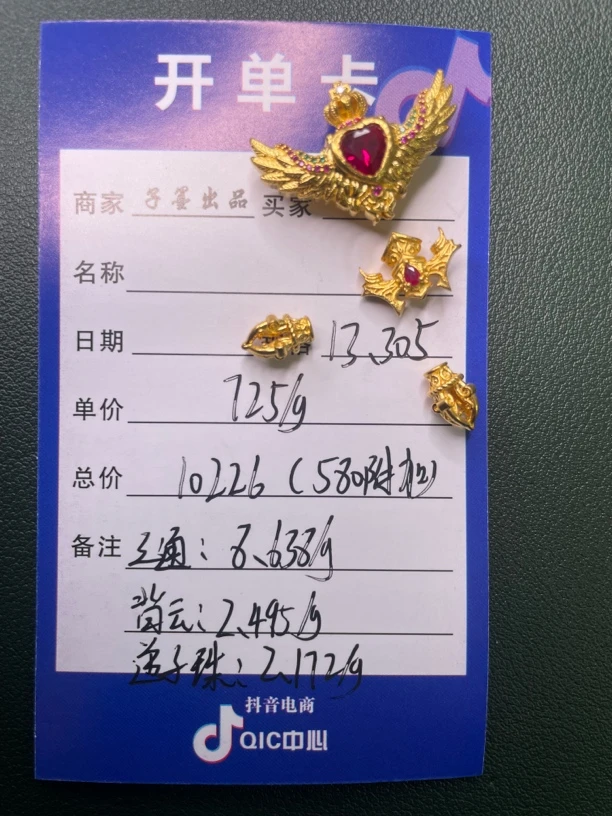 开单卡
商家 子墨出品 买家
名称
日期 13.305
单价 725/g
总价 10226 (580附加)
备注 三通：8.638/g
背云：2.495/g
子珠：2.172/g
抖音电商
QIC中心